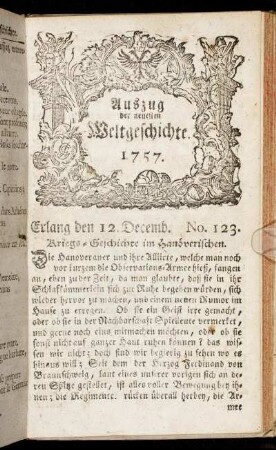 Auszug
der neuesten
Weltgeschichte.
1757.
Erlang den 12. Decemb. No. 123.
Kriegs-Geschichte im Hanöverischen.
Die Hanoveraner und ihre Alliirte, welche man noch
vor kurzem die Observations-Armee hieß, fangen
an, eben zu der Zeit, da man glaubte, daß sie in ihr
Schlafkämmerlein sich zur Ruhe begeben würden, sich
wieder hervor zu machen, und einem neuen Rumor im
Hause zu erregen. Ob sie ein Geist irre gemacht,
oder ob sie in der Nachbarschaft Spielleute vermerket,
und gerne noch eins mitmachen möchten, oder ob sie
sonst nicht auf ganzer Haut ruhen können? das wis-
sen wir nicht; doch sind wir begierig zu sehen wo es
hinaus will; Seit dem der Herzog Ferdinand von
Braunschweig, laut eines unserer vorigen sich an de-
ren Spitze gestellet, ist alles voller Bewegung bey ih-
nen; die Regimente rücken überall herbey, die Ar-
mee